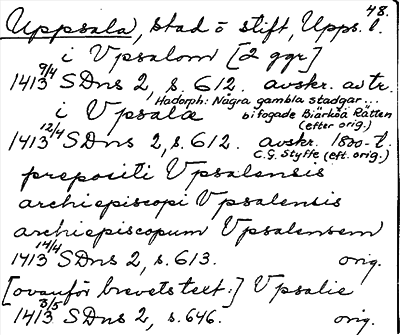 48.
Uppsala, stad o stift, Upps. l.
i Vpsalom [2 ggr]
1413 9/4 SDns 2, s. 612. avskr. av tr.
Hadorph: Några gambla stadgar...
i Vpsalæ bifogade Biärköa Rätten
(efter orig.)
1413 12/4 SDns 2, s. 612. avskr. 1800-t.
C.G. Styffe (eft. orig.)
prepositi Vpsalensis
archiepiscopi Vpsalensis
archiepiscopum Vpsalensem
1413 14/4 SDns 2, s. 613. orig.
[ovanför brevets text:] Vpsalie
1413 3/5 SDns 2, s. 646. orig.